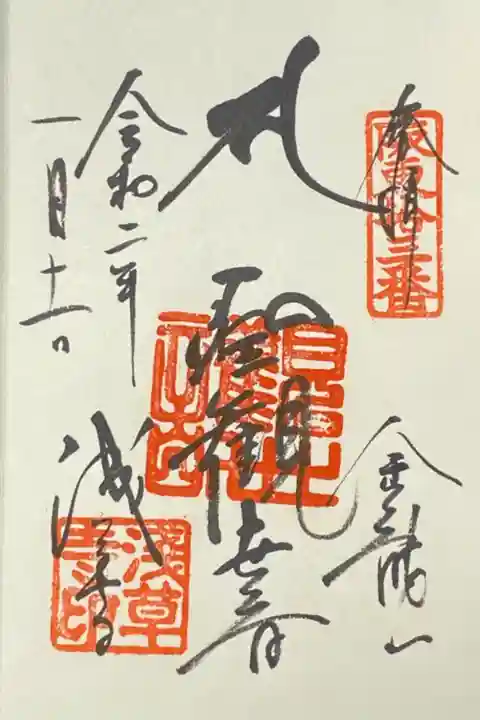 奉拝
坂東拾三番
金龍山
聖観世音
浅草寺
浅草寺印
令和二年
一月十一日